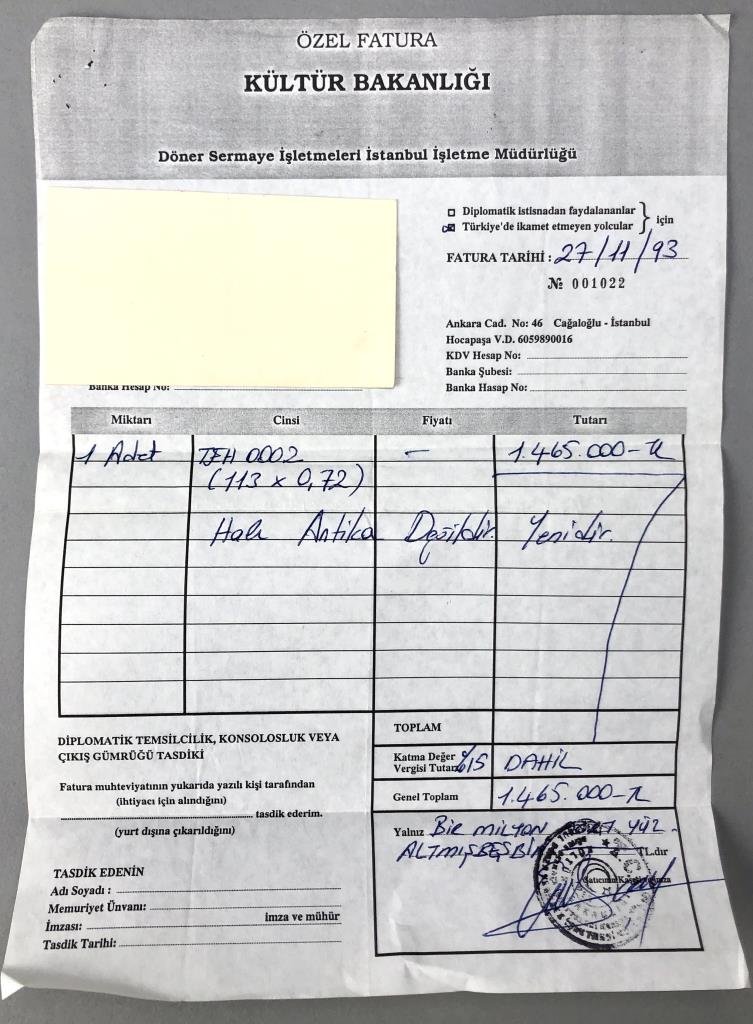 ÖZEL FATURA
KÜLTÜR BAKANLIĞI
Döner Sermaye İşletmeleri İstanbul İşletme Müdürlüğü
Diplomatik istisnadan faydalananlar
Türkiye'de ikamet etmeyen yolcular
için
FATURA TARİHİ: 27/11/93
№ 001022
Ankara Cad. No: 46 Cağaloğlu - İstanbul
Hocapaşa V.D. 6059890016
KDV Hesap No:
Banka Şubesi:
Banka Hesap No: Banka Hasap No:
Miktarı Cinsi Fiyatı Tutarı
1 Adet 0002 - 1.465.000-TL
(113 x 0,72)
Halı Antika Değildir. Yenidir.
TOPLAM
DİPLOMATİK TEMSİLCİLİK, KONSOLOSLUK VEYA
ÇIKIŞ GÜMRÜĞÜ TASDİKİ
Katma Değer
Vergisi Tutarı %15 DAHİL
Genel Toplam 1.465.000-TL
Fatura muhteviyatının yukarıda yazılı kişi tarafından
(ihtiyacı için alındığını)
tasdik ederim.
(yurt dışına çıkarıldığını)
Yalnız BİR MİLYON YÜZ-
ALTMIŞBEŞBİN TL.dır
TASDİK EDENİN
Adı Soyadı :
Memuriyet Ünvanı:
imza ve mühür
İmzası:
Tasdik Tarihi: